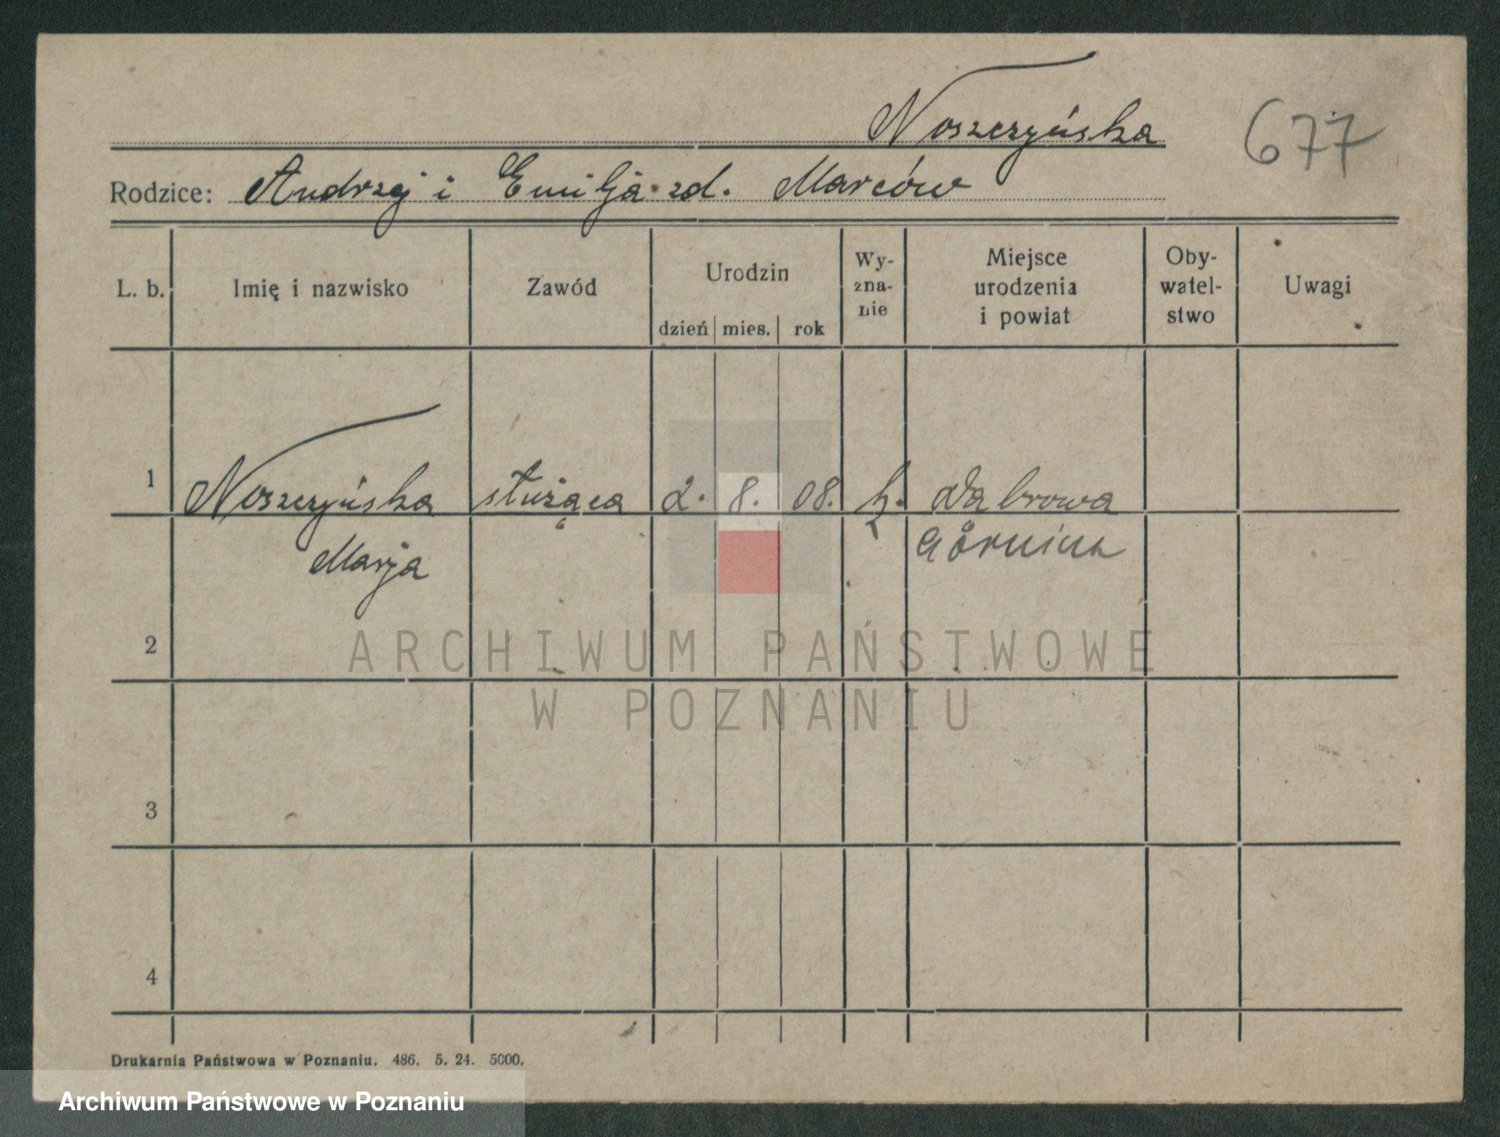 Noszczyńska
677
Rodzice: Andrzej i Emilja zd. Marców
L. b. Imię i nazwisko Zawód Urodzin dzień mies. rok Wy-zna-nie Miejsce urodzenia i powiat Oby-watel-stwo Uwagi
1 Noszczyńska służąca 2. 8. 08. k. Dąbrowa
Marja Górnicza
2
ARCHIWUM PAŃSTWOWE
W POZNANIU
3
4
Drukarnia Państwowa w Poznaniu. 486. 5. 24. 5000.
Archiwum Państwowe w Poznaniu